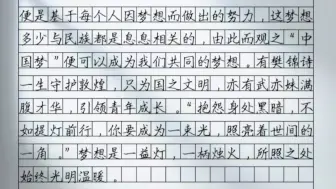 便是基于每个人因梦想而做出的努力，这梦想
多少与民族都是息息相关的，由此而观之“中
国梦”便可以成为我们共同的梦想。有樊锦诗
一生守护敦煌，只为国之文明，亦有武亦姝满
腹才华，引领青年成长。“抱怨身处黑暗，不
如提灯前行，你要成为一束光，照亮着世间的
一角。”梦想是一盏灯，一柄烛火，所照之处
始终光明温暖。